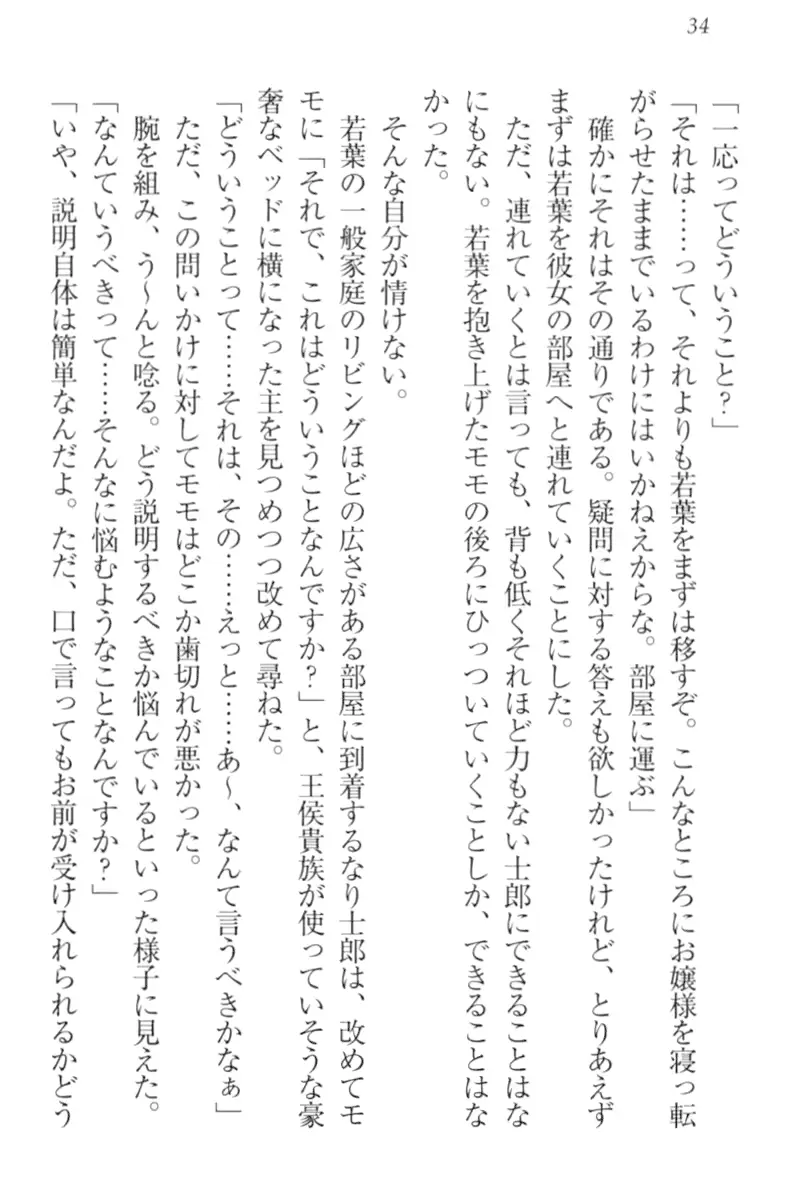 34
「一応ってどういうこと？」
「それは……って、それよりも若葉をまずは移すぞ。こんなところにお嬢様を寝っ転
がらせたままでいるわけにはいかねえからな。部屋に運ぶ」
確かにそれはその通りである。疑問に対する答えも欲しかったけれど、とりあえず
まずは若葉を彼女の部屋へと連れていくことにした。
ただ、連れていくとは言っても、背も低くそれほど力もない士郎にできることはな
にもない。若葉を抱き上げたモモの後ろにひっついていくことしか、できることはな
かった。
そんな自分が情けない。
若葉の一般家庭のリビングほどの広さがある部屋に到着するなり士郎は、改めてモ
モに「それで、これはどういうことなんですか？」と、王侯貴族が使っていそうな豪
奢なベッドに横になった主を見つめつつ改めて尋ねた。
「どういうことって……それは、その……えっと……あ〜、なんて言うべきかなぁ」
ただ、この問いかけに対してモモはどこか歯切れが悪かった。
腕を組み、う〜んと唸る。どう説明するべきか悩んでいるといった様子に見えた。
「なんていうべきって……そんなに悩むようなことなんですか？」
「いや、説明自体は簡単なんだよ。ただ、口で言ってもお前が受け入れられるかどう